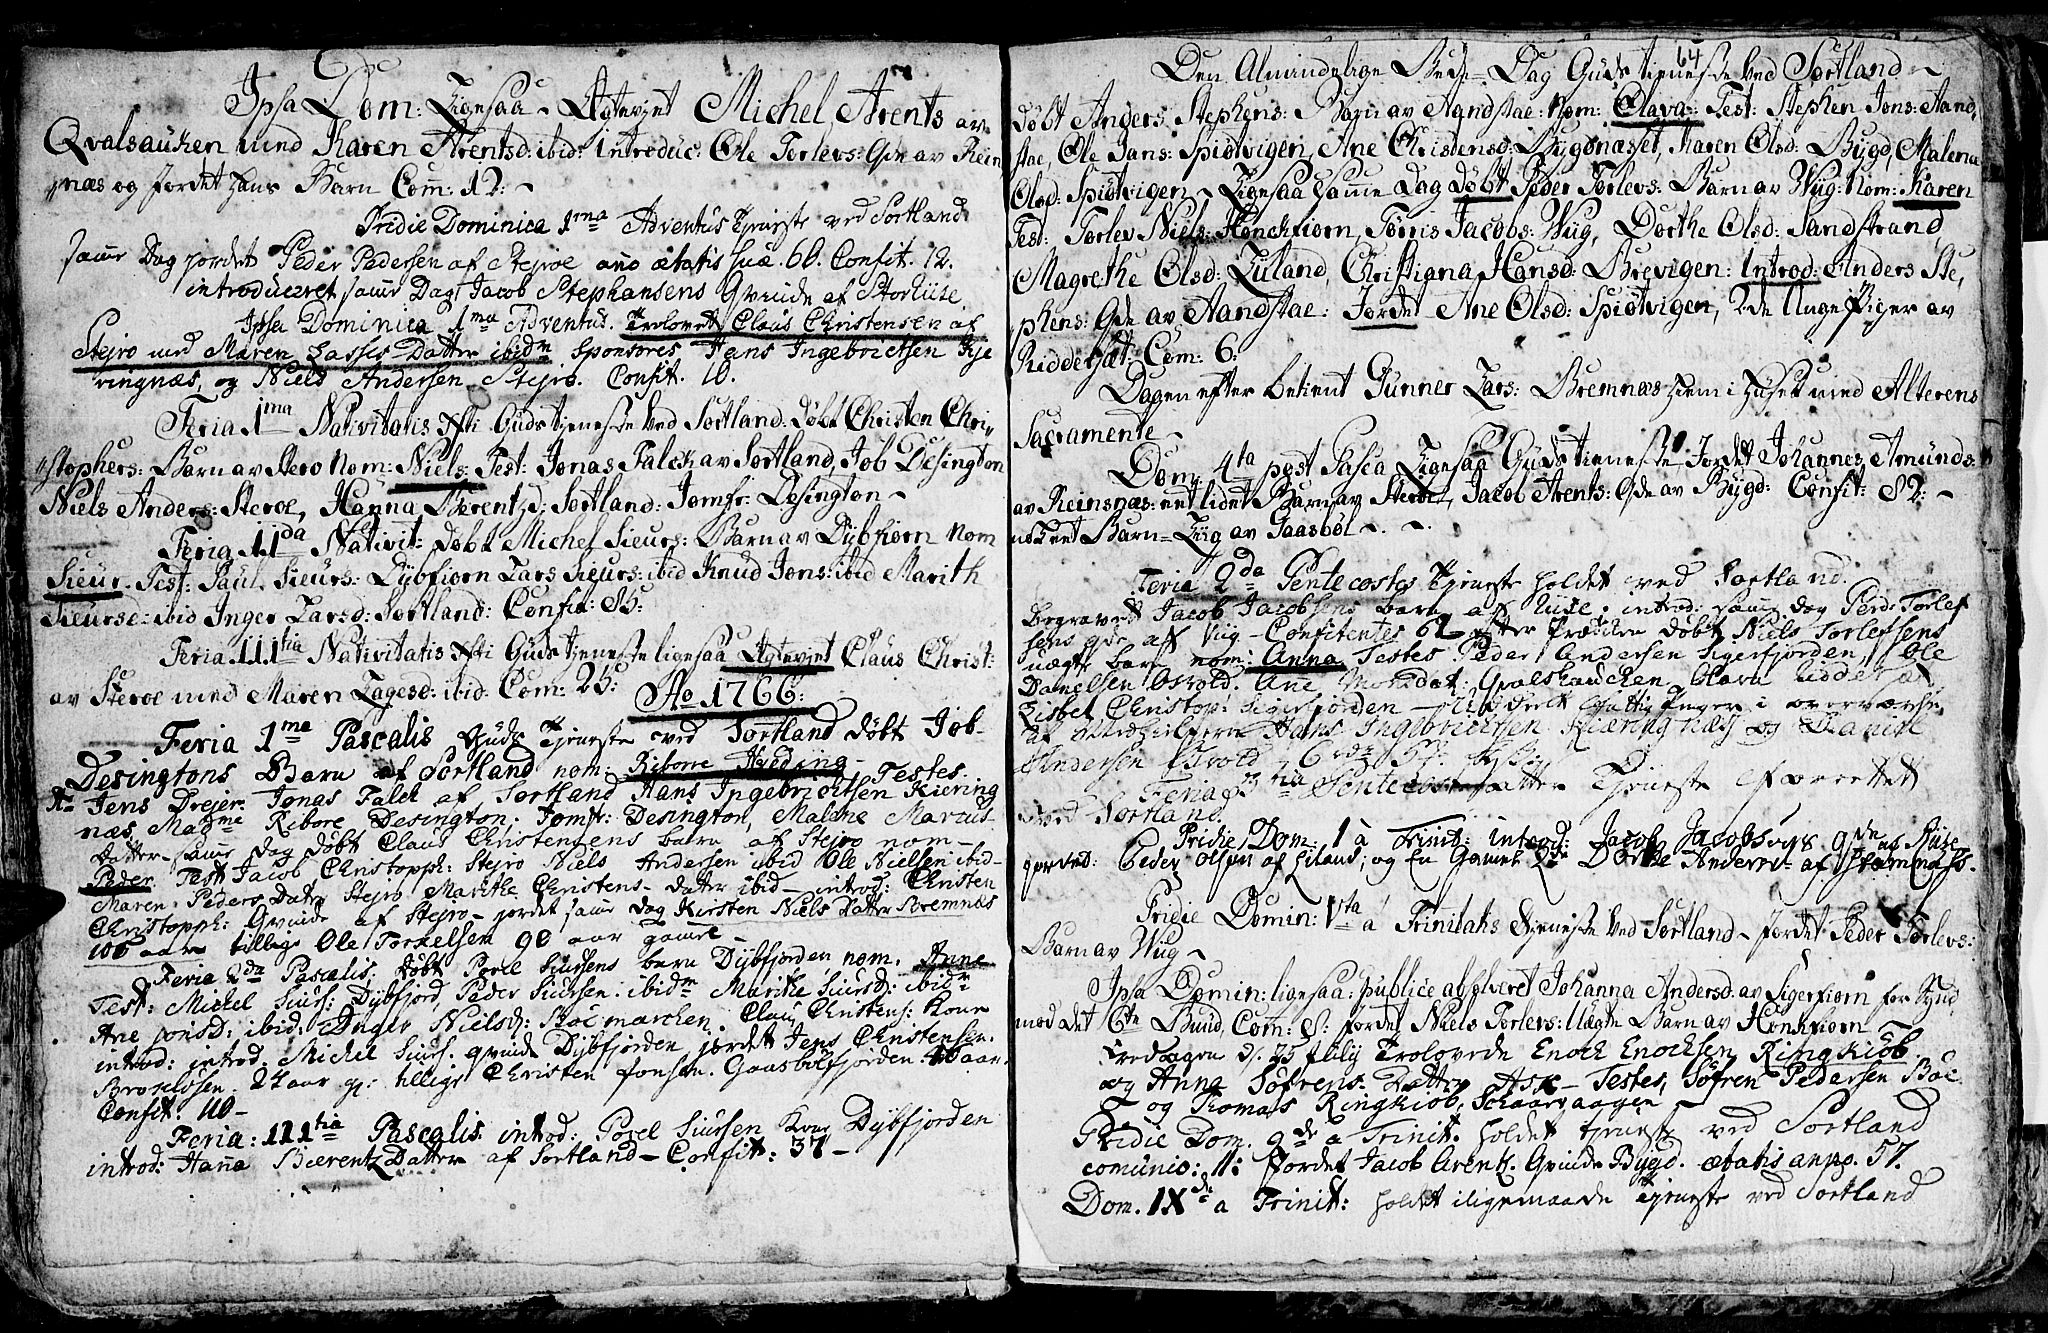 Ipsa Dom: Ligesaa Egteviet Michel Arents av
Qvalsauken med Karen Arentsd: ibid: introduc: Ole Torlevs: Qde av Rein
næs og jordet hans Barn Com: 12:
Pridie Dominica 1ma Adventus Tjeneste ved Sortland
samme Dag jordet Peder Pedersen af Stejroe ano ætatis suæ. 60. Confit. 12.
introduceret samme Dag Jacob Stephansens Qvinde af Storhuse
Ipsa Dominica 1ma Adventus. Trolovet Claus Christensen af
Stejro med Maren Lasses Datter ibidm sponsores Hans Ingebrictsen Kje
ringnæs, og Niels Andersen Stejro. Confit. 10.
Feria 1ma Nativitatis Xsti Guds tjeneste Ved Sortland: Døbt Christen Chri
stophers: Barn av Stero Nom: Niels: Test: Jonas Falck av Sortland, Job Desington
Niels Anders: Steroe, Hanna Berentzd: Sortland: Jomfr: Desington
Feria 11da Nativit: Døbt Michel Sieurs: Barn av Dybfiorn Nom
Sieur. Test: Paul Sieurs: Dybfiorn Lars Sieurs: ibid Knud Jons: ibid Marith
Sieursd: ibid Inger Larsd: Sortland: Confit: 85:
Feria 111tia Nativitatis Xsti Guds tjeneste ligesaa Egteviet Claus Christ:
av Steroe med Maren Lagesd: ibid: Com: 25: Ao 1766:
Feria 1ma Pascalis Guds Tjeneste ved Sortland døbt Job
Desingtons Barn af Sortland nom: Ribore Hveding
Testes.
Hr Jens Drejer. Jonas Falck af Sortland Hans Ingebrichtsen Kiering
næs, Madme Ribore Desington: Jomfr: Desington, Malene Marcus
Datter samme Dag døbt Claus Christensens barn af Stejro nom
Peder. Test Jacob Christopph: Stejro Niels Andersen ibid Ole Nielsen ibid
Maren Peders Datr Stejro Marithe Christens Datter ibid introd: Christen
Christopph: Qvinde af Stejro jordet samme dag Kirsten Niels Datter Bremnæs
106 aar tillige Ole Torkelsen 90 aar gamle
Feria 2da Pascalis: døbt Povel Siursens barn Dybfjorden nom. Anne
Test: Michel Siurs: Dybfjord, Peder Siursen: ibidm Marithe Siursd: ibidm
Ane Jonsd: ibid: Inger Nielsd: Boemarchen. Claus Christens: Kone
introd: introd. Michel Siurs. qvinde Dybfjorden jordet Jens Christensen
Brokløsen. 24 aar gl: tillige Christen Jonsen. Gaasbolfjorden 46 aar.
Confit. 110
Feria: 111tia Pascalis: introd: Povel Siursen Kone Dybfjorden
introd: Hana Bærentz Datter af Sortland Confit: 37
64
Den Almindelige Bede-Dag Guds tieneste ved Sortland
døbt Anders Stephens: Barn av Aandstae: Nom: Olava: Test: Stephen Jons: Aand
stae, Ole Jans: Spiotvigen, Ane Christensd: Bygdnæsset, Karen Olsd: Bygd, Malena
Olsd: Spiotvigen Ligesaa samme Dag Døbt Peder Torlevs: Barn av Wug: Nom: Karen
Test: Torlev Niels: Honckfiorn, Torris Jacobs: Wug, Dorthe Olsd: Sandstrand
Magrethe Olsd: Luland, Christiana Hansd: Brevigen: Introd: Anders Ste
phens: Qde av Aandstae: Jordet Ane Olsd: Spiotvigen, 2de Unge Piger av
Riddersæt: Com: 6:
Dagen efter betient Gunner Lars: Bremnæs hiem i huset med Alterens
Sacramente
Dom: 4ta post Pasca Ligesaa Guds tieneste Jordet Johannes Amunds:
av Reinsnæs: eet lidet Barn av Steroe, Jacob Arents: Qde av Bygd: Confit: 82:
nok eet Barn-Liig av Gaasbøl
Feria 2da Pentecostes Tjeneste holdet ved Sortland.
Begravet Jacob Jacobsens barn af Huse. introd: samme Dag Peder Torlef
sens qde af Vug Confitentes 62 Efter Prædiken døbt Niels Torlefsens
uægte barn nom: Anna Testes Peder Andersen Sigerfjorden, Ole
Danielsen Osvold. Ane Monsdat: Qvalshaucken Olava
Lisbet Christop: Sigerfjorden
af Hans Ingebrictsen Kiæringnæs og Daniel
Andersen Osvold 6
Feria 3tia Pentecost: atter Tjeneste forrettet
ved Sortland.
Pridie Dom: 1 a Trinit: introd: Jacob Jacobsens qde af Huse
jordet: Peder Olsen af Liland, og En Gammel Dorthe Andersd: af
Pridie Domin: Vta a Trinitatis Tjeneste ved Sortland Jordet Peder Torlevs:
Barn av Wug
Ipsa Domin: ligesaa: publice absolveret Johanna Andersd: av Sigerfiorn for Synd
mod det 6te Buud, Com: 8: jordet Niels Torlevs: Uægte Barn av Honckfiorn
Fredagen d. 25 July Trolovede Enoch Enochsen Ringkiøb
og Anna Søfrens Datter Ask Testes, Søfren Pedersen Boe
og Thomas Ringkiøb, Schaarvaagen
Pridie Dom. 9de a Trinit. holdet tjeneste ved Sortland
comunio: 11: Jordet Jacob Arentz. Qvinde Bygd. ætatis anno. 57.
Dom. IXde a Trinit: holdet iligemaade Tjeneste ved Sortland